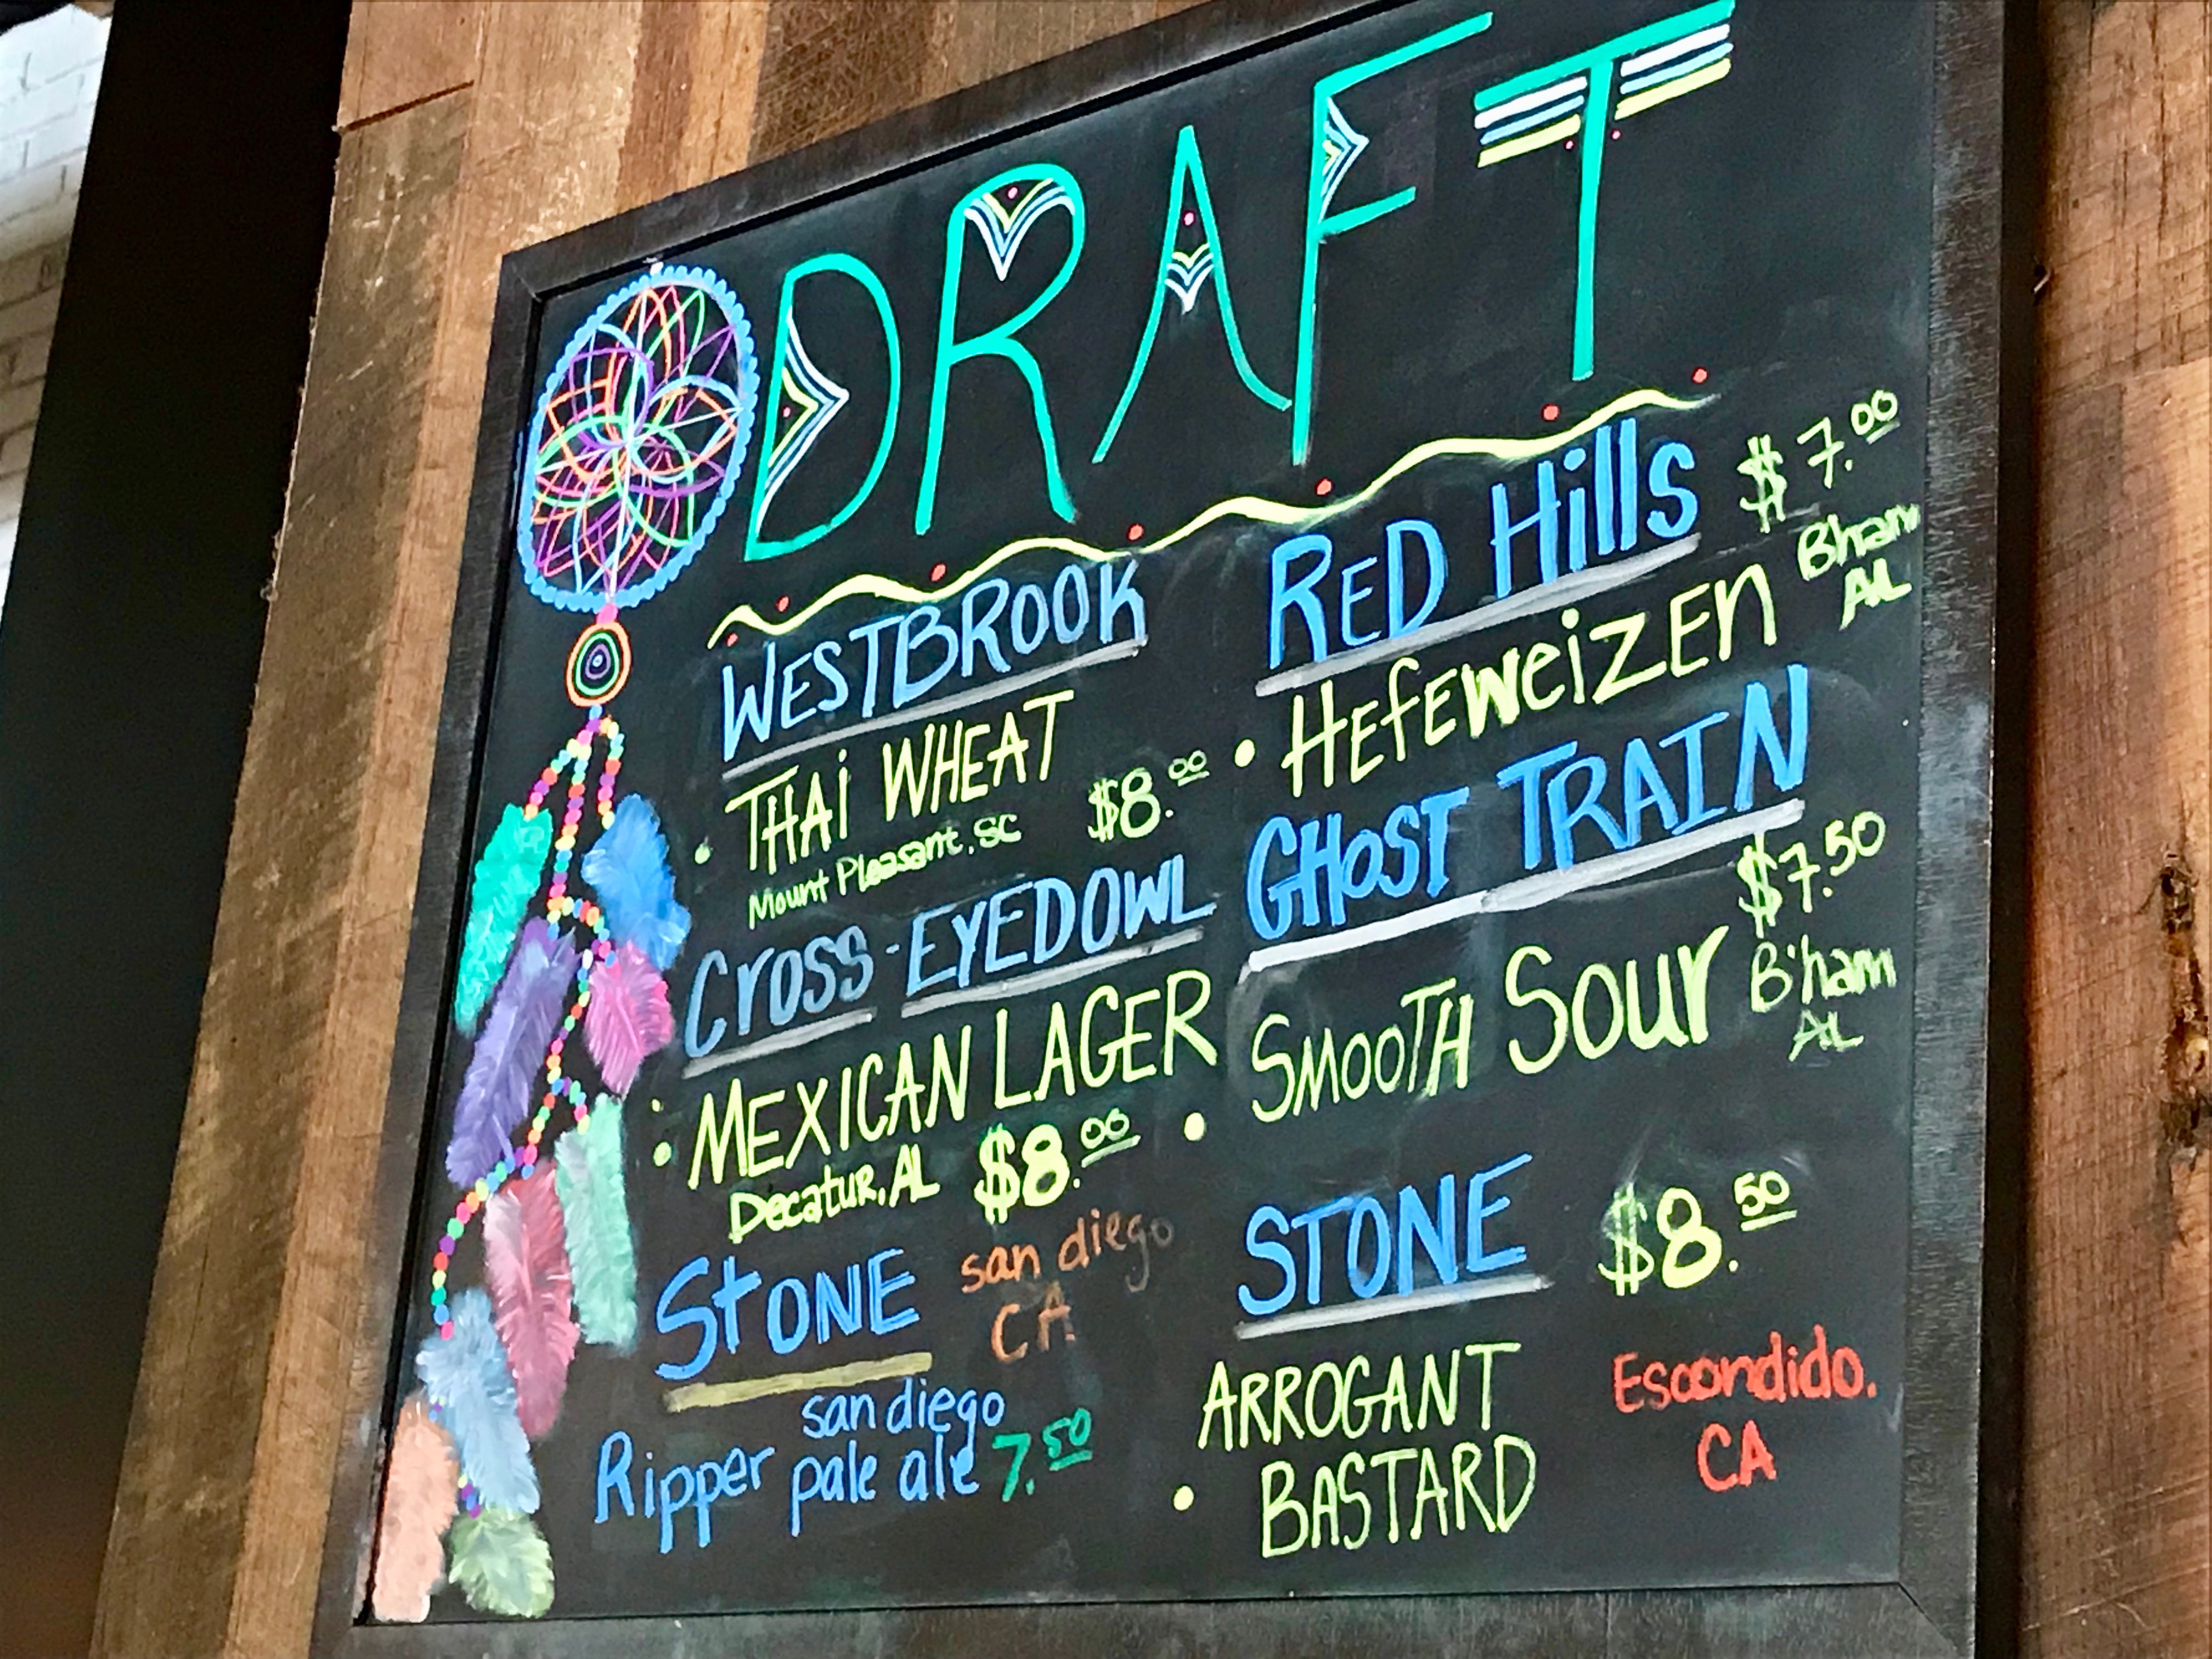 DRAFT
WESTBROOK
• THAi WHEAT
Mount Pleasant, SC $8.00
CrOSS-EYEDOWL
• MEXICAN LAGER
Decatur, AL $8.00
StONE san diego
CA
san diego
Ripper pale ale 7.50
RED Hills $7.00
• HefeweizEn Bham
AL
GHosT TRAIN
$7.50
• SMOOTH Sour B'ham
AL
STONE $8.50
ARROGANT
• BASTARD
Escondido.
CA